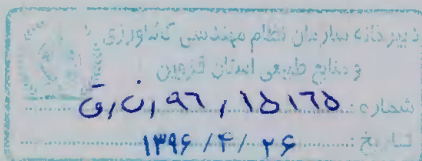 دبیرخانه سازمان نظام مهندسی کشاورزی
و منابع طبیعی استان قزوین
شماره: ۹۶/۱۵۱۶۵/ن/ق
تاریخ: ۱۳۹۶/۴/۲۶